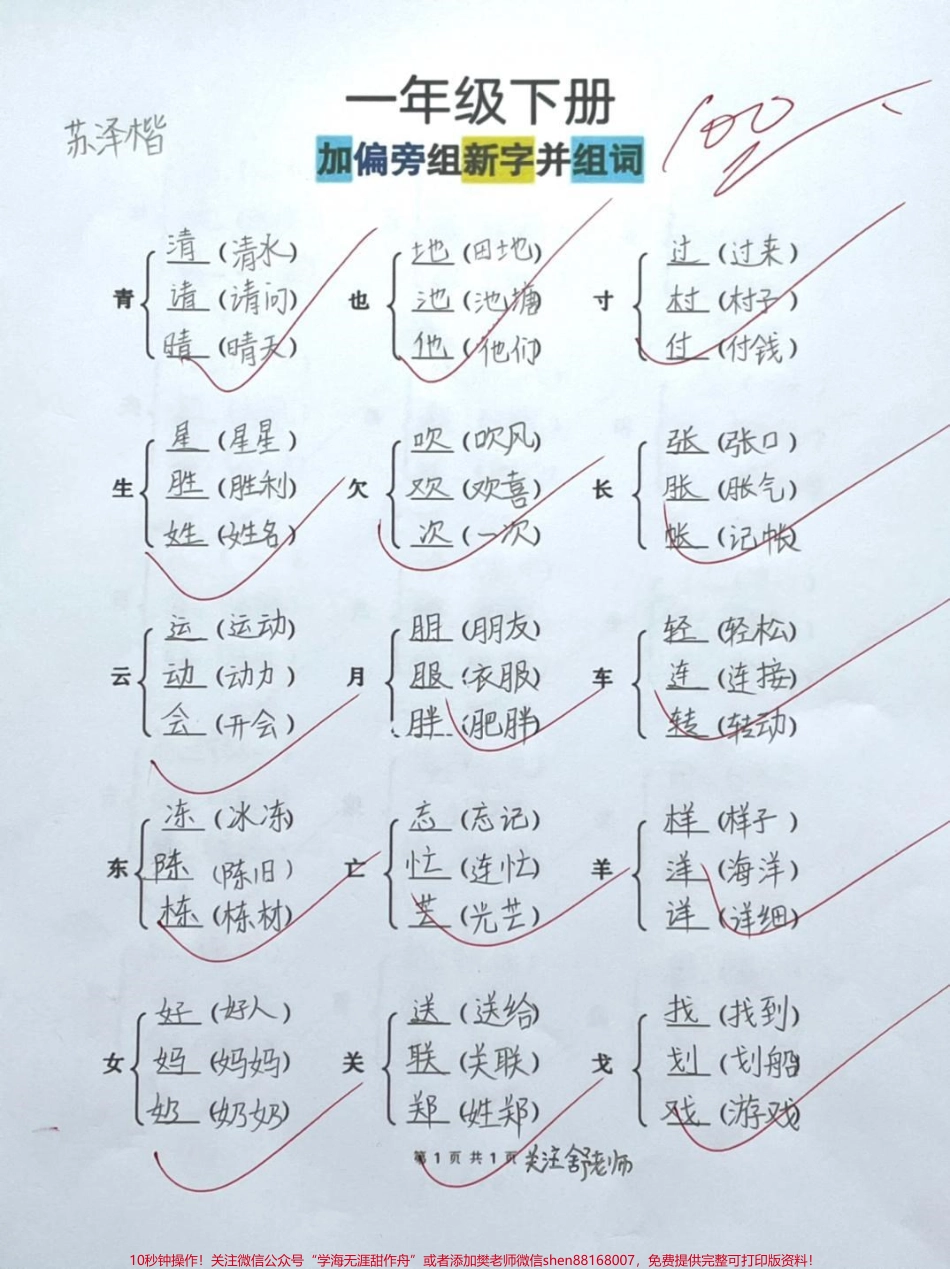 一年级下册
苏泽楷
加偏旁组新字并组词
100
清 (清水) 地 (田地) 过 (过来)
青 请 (请问) 也 池 (池塘) 寸 村 (村子)
晴 (晴天) 他 (他们) 付 (付钱)
星 (星星) 吹 (吹风) 张 (张口)
生 胜 (胜利) 欠 欢 (欢喜) 长 胀 (胀气)
姓 (姓名) 次 (一次) 帐 (记帐)
运 (运动) 朋 (朋友) 轻 (轻松)
云 动 (动力) 月 服 (衣服) 车 连 (连接)
会 (开会) 胖 (肥胖) 转 (转动)
冻 (冰冻) 忘 (忘记) 样 (样子)
东 陈 (陈旧) 亡 忙 (连忙) 羊 洋 (海洋)
栋 (栋材) 芒 (光芒) 详 (详细)
好 (好人) 送 (送给) 找 (找到)
女 妈 (妈妈) 关 联 (关联) 戈 划 (划船)
奶 (奶奶) 郑 (姓郑) 戏 (游戏)
第1页共1页 关注舒老师
10秒钟操作！关注微信公众号“学海无涯甜作舟”或者添加樊老师微信shen88168007，免费提供完整可打印版资料！